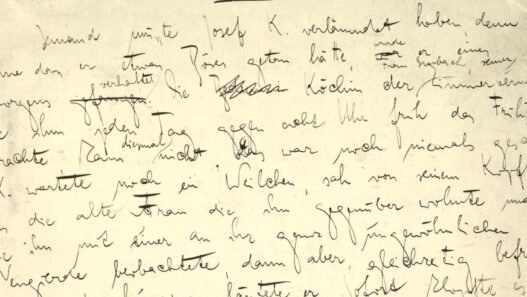 Jemand mußte Josef K. verläumdet haben denn
ne das er etwas Böses getan hätte, wurde er eines
orgens verhaftet gefangen. Die Köchin Frau Grubach, seiner der Zimmerverm
ie ihm jeden Tag gegen acht Uhr früh das Früh
rachte kam diesmal nicht. Das war noch niemals gesch
K. wartete noch ein Weilchen, sah von seinem Kopf
die alte Frau die ihm gegenüber wohnte und
ie ihn mit einer an ihr ganz ungewöhnlichen
eugierde beobachtete, dann aber, gleichzeitig befr
läutete er. Sofort klopfte es